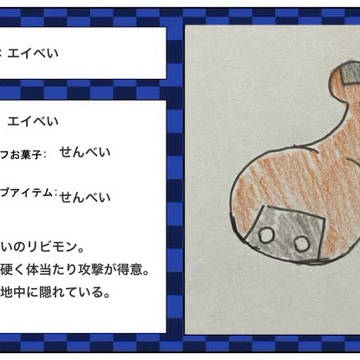 ：エイベい
エイベい
フお菓子：せんべい
ブアイテム：せんべい
いのリビモン。
硬く体当たり攻撃が得意。
地中に隠れている。